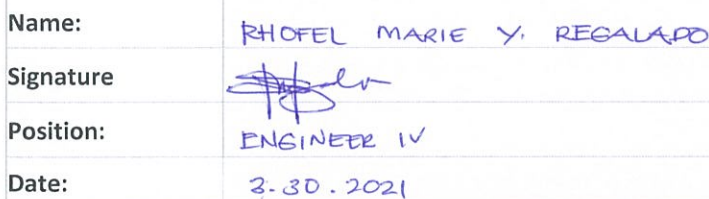 Name: RHOFEL MARIE Y. REGALADO
Signature
Position: ENGINEER IV
Date: 3.30.2021